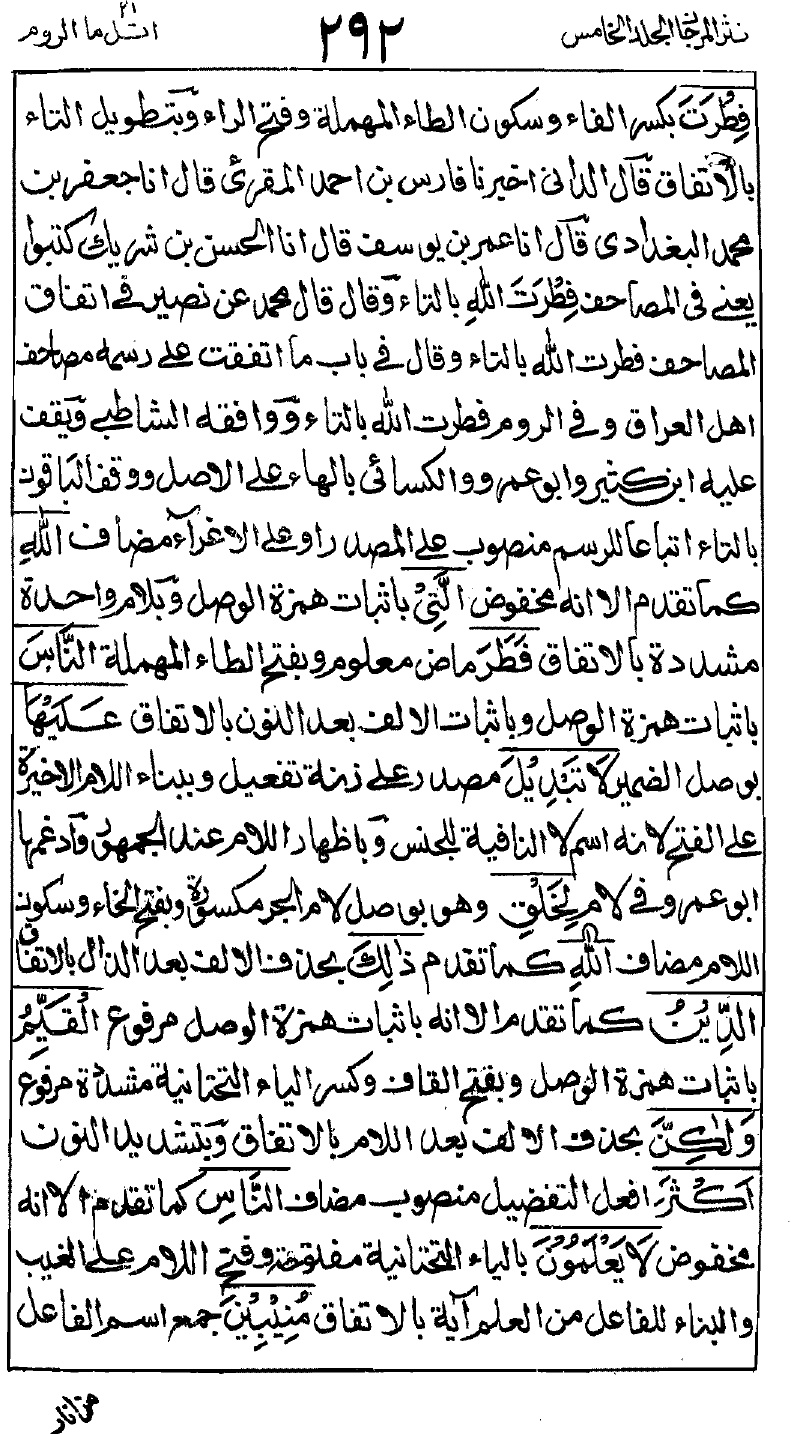 نثر المرجان المجلد الخامس
٢٩٢
اتل ما ٢١ الروم
فِطْرَتَ بكسر الفاء وسكون الطاء المهملة وفتح الراء وبتطويل التاء
بالاتفاق قال الدانى اخبرنا فارس بن احمد المقرئ قال انا جعفر بن
محمد البغدادى قال انا عمر بن يوسف قال انا الحسن بن شريك كتبوا
يعنے فى المصاحف فِطْرَتَ اللهِ بالتاء وقال قال محمد عن نصير فے اتفاق
المصاحف فطرت الله بالتاء وقال فے باب ما اتفقت علے رسمه مصاحف
اهل العراق وفے الروم فطرت الله بالتاء ووافقه الشاطبے ويقف
عليه ابن كثير وابو عمرو والكسائى بالهاء علے الاصل ووقف الباقون
بالتاء اتباعا للرسم منصوب علے المصدر او علے الاغراء مضاف اللهِ
كما تقدم الا انه مخفوض الَّتِىْ باثبات همزة الوصل وبلام واحدة
مشددة بالاتفاق فَطَرَ ماض معلوم وبفتح الطاء المهملة النَّاسَ
باثبات همزة الوصل وباثبات الالف بعد النون بالاتفاق عَلَيْهَا
بوصل الضمير لَا تَبْدِيْلَ مصدر علے زنة تفعيل وببناء اللام الاخيرة
علے الفتح لانه اسم لا النافية للجنس وباظهار اللام عند الجمهور وادغمها
ابو عمرو فے لام لِخَلْقِ وهو بوصل لام الجر مكسورة وبفتح الخاء وسكون
اللام مضاف اللهِ كما تقدم ذٰلِكَ بحذف الالف بعد الذال بالاتفاق
الدِّيْنُ كما تقدم الا انه باثبات همزة الوصل مرفوع الْقَيِّمُ
باثبات همزة الوصل وبفتح القاف وكسر الياء التحتانية مشددة مرفوع
وَلٰكِنَّ بحذف الالف بعد اللام بالاتفاق وبتشديد النون
اَكْثَرَ افعل التفضيل منصوب مضاف النَّاسِ كما تقدم الا انه
مخفوض لَا يَعْلَمُوْنَ بالياء التحتانية مفتوحة وفتح اللام علے الغيب
والبناء للفاعل من العلم آية بالاتفاق مُنِيْبِيْنَ جمع اسم الفاعل